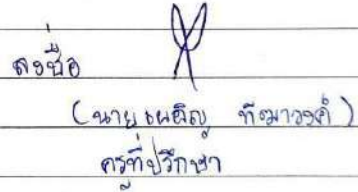 ลงชื่อ
(นายเผด็ญ ทีฆาวงค์)
ครูที่ปรึกษา